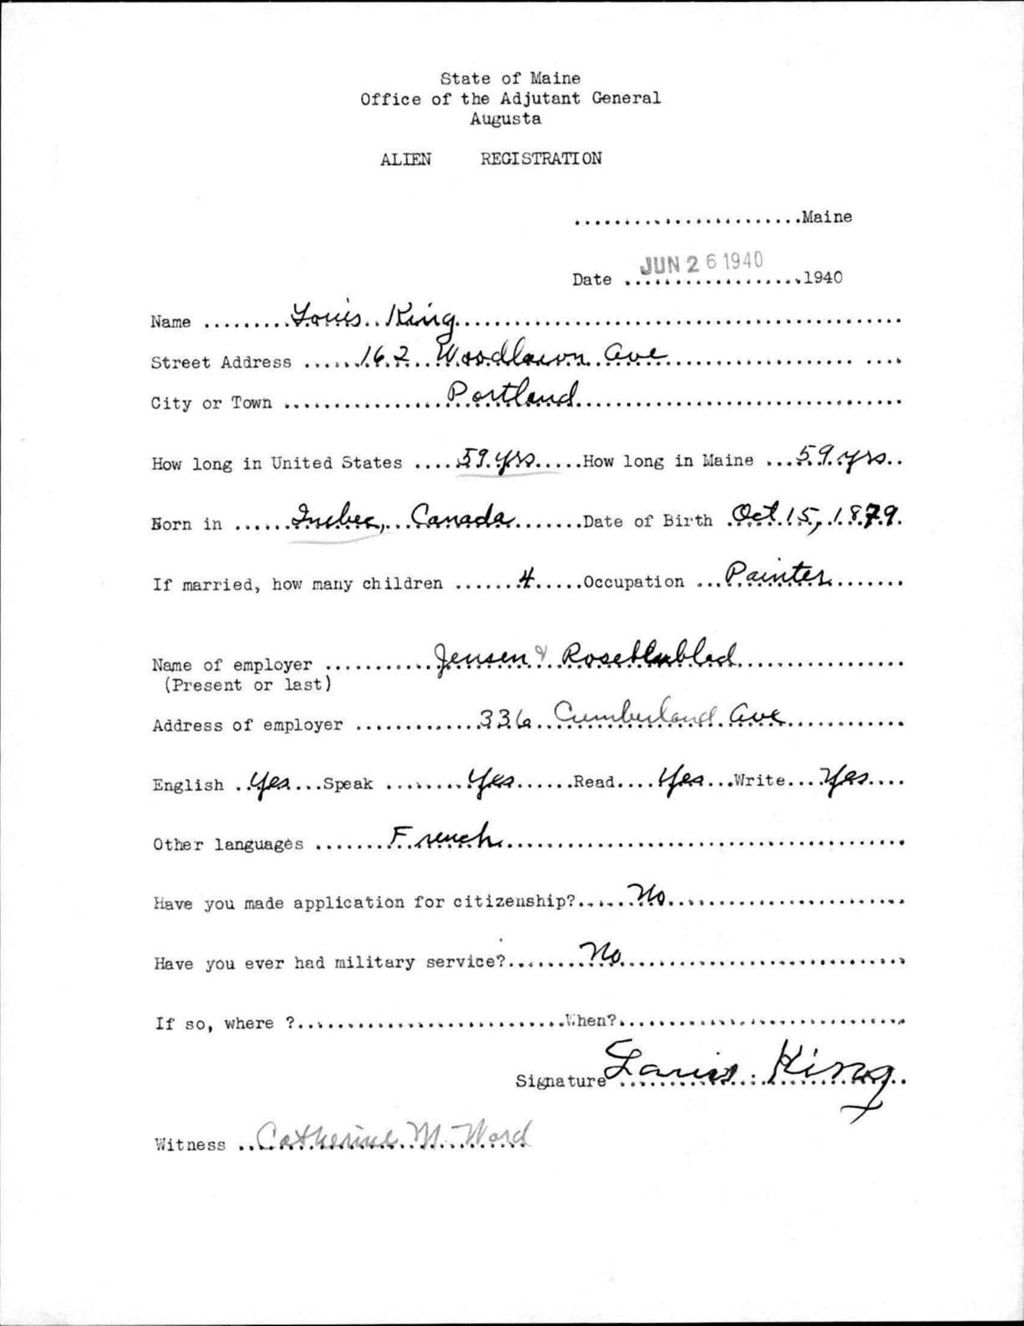 State of Maine
Office of the Adjutant General
Augusta
ALIEN REGISTRATION
.......................Maine
Date JUN 26 1940 ..................1940
Name .........Louis King..........................................
Street Address ......162 Woodlawn Ave......................... ....
City or Town ................Portland.................................
How long in United States ....59 yrs.....How long in Maine ...59 yrs..
Born in ......Quebec, Canada.......Date of Birth .Oct 15, 1879.
If married, how many children .......4.....Occupation ...Painter.......
Name of employer ...........Jensen & .................
(Present or last)
Address of employer ............336 Cumberland Ave............
English ..Yes...Speak .........Yes......Read....Yes...Write....Yes....
Other languages .......French.......................................
Have you made application for citizenship?......No.......................
Have you ever had military service?........No............................
If so, where ?..........................When?............................
Signature Louis King..
Witness ..Catherine M. Ward